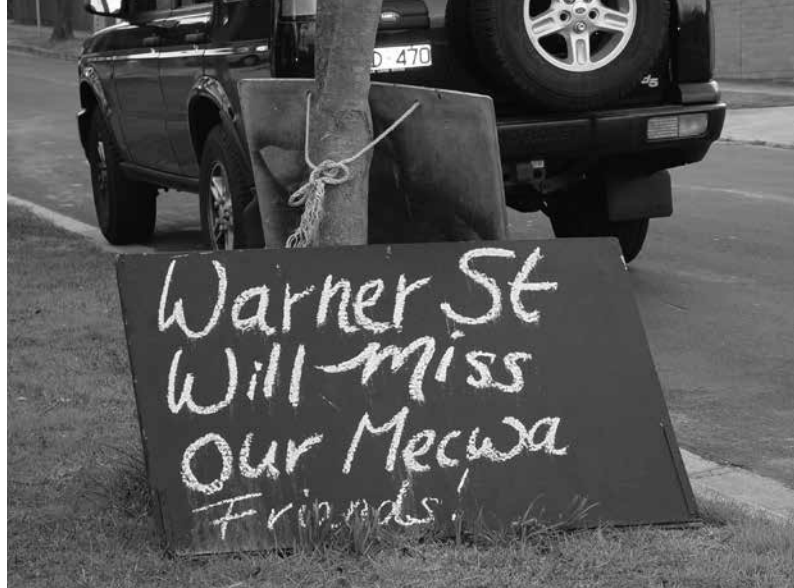 D·470
d5
Warner St
Will miss
Our Mecwa
Friends!